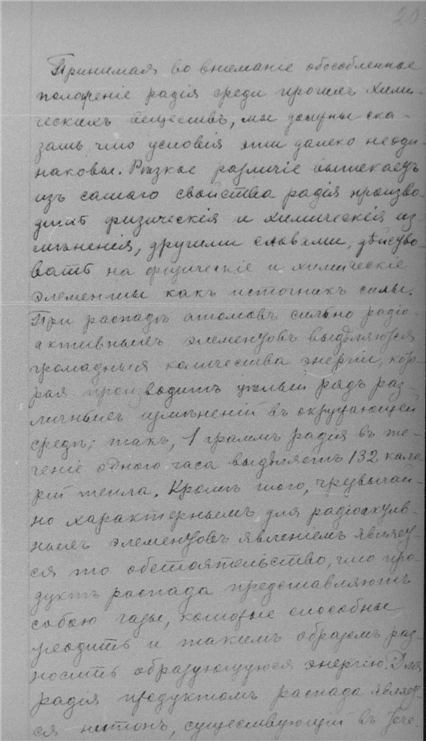 20
Принимая во вниманіе обособленное
положеніе радія среди прочихъ хими-
ческихъ веществъ, мы должны ска-
зать что условія эти далеко неоди-
наковы. Рѣзкое различіе вытекаетъ
изъ самаго свойства радія произво-
дить физическія и химическія из-
мѣненія, другими словами, дѣйство-
вать на физическіе и химическіе
элементы какъ источникъ силы.
При распадѣ атомовъ сильно радіо-
активныхъ элементовъ выдѣляются
громадныя количества энергіи, кото-
рая производитъ цѣлый рядъ раз-
личныхъ измѣненій въ окружающей
средѣ; такъ, 1 граммъ радія въ те-
ченіе одного часа выдѣляетъ 132 кало-
рій тепла. Кромѣ того, чрезвычай-
но характернымъ для радіоактив-
ныхъ элементовъ явленіемъ являет-
ся то обстоятельство, что про-
дукты распада представляютъ
собою газы, которые способны
уходить и такимъ образомъ раз-
носить образующуюся энергію. Для
радія продуктомъ распада являет-
ся нитонъ, существующій въ тече-